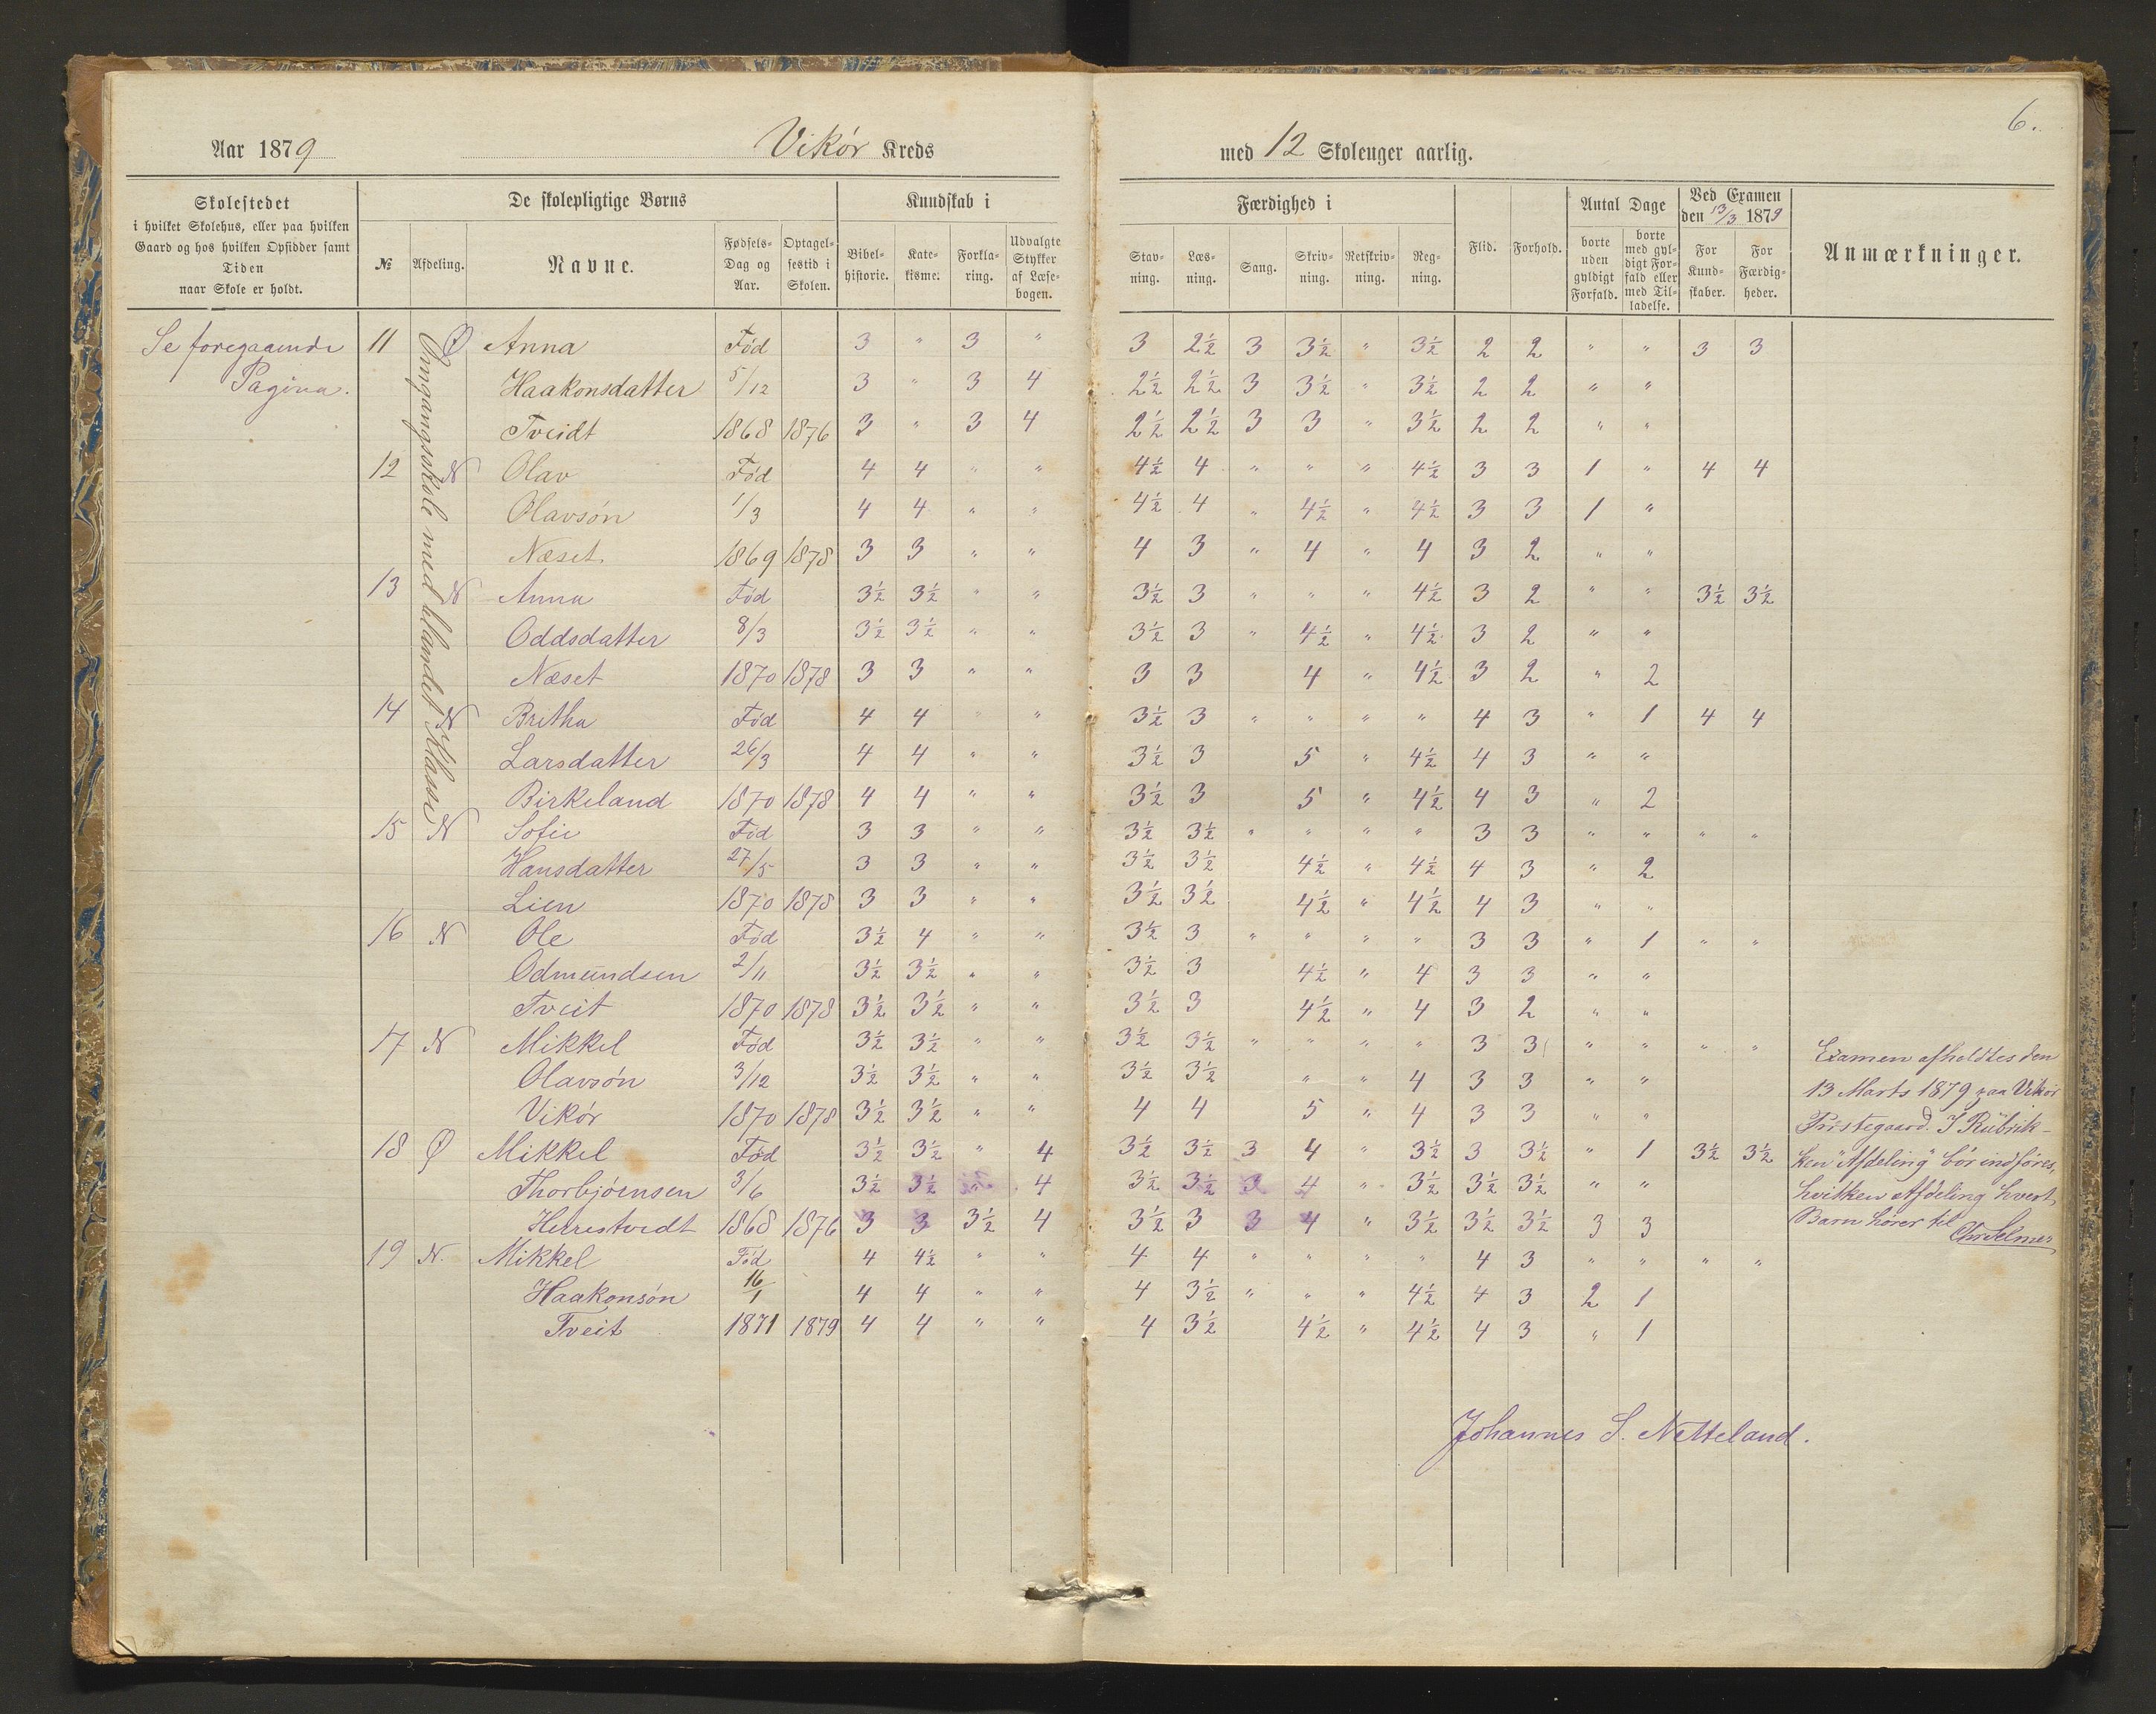 6.
Aar 1879 Vikör Kreds med 12 Skoleuger aarlig.
Skolestedet
i hvilket Skolehus, eller paa hvilken
Gaard og hos hvilken Opsidder samt
Tiden
naar Skole er holdt.
De skolepligtige Børns
№ Afdeling. Navne. Fødsels-Dag og Aar. Optagelsestid i Skolen.
Kundskab i
Bibelhistorie. Katekisme. Forklaring. Udvalgte Stykker af Læsebogen.
Færdighed i
Stavning. Læsning. Sang. Skrivning. Retskrivning. Regning.
Flid. Forhold.
Antal Dage
borte uden gyldigt Forfald. borte med gyldigt Forfald eller med Tilladelse.
Ved Examen
den 13/3 1879
For Kundskaber. For Færdigheder.
Anmærkninger.
Se foregaaende
Pagina.
Omgangsskole med blandet Klasse
11 Ø Anna Fød 3 " 3 " 3 2½ 3 3½ " 3½ 2 2 " " 3 3
Haakonsdatter 5/12 3 " 3 4 2½ 2½ 3 3½ " 3½ 2 2 " "
Tveidt 1868 1876 3 " 3 4 2½ 2½ 3 3 " 3½ 2 2 " "
12 N Olav Fød 4 4 " " 4½ 4 " " " 4½ 3 3 1 " 4 4
Olavsön 1/3 4 4 " " 4½ 4 " 4½ " 4½ 3 3 1 "
Næset. 1869 1878 3 3 " " 4 3 " 4 " 4 3 2 " "
13 N Anna Fød 3½ 3½ " " 3½ 3 " " " 4½ 3 2 " " 3½ 3½
Oddsdatter 8/3 3½ 3½ " " 3½ 3 " 4½ " 4½ 3 2 " "
Næset 1870 1878 3 3 " " 3 3 4 " 4½ 3 2 " 2
14 N Britha Fød 4 4 " " 3½ 3 " " " " 4 3 " 1 4 4
Larsdatter 26/3 4 4 " " 3½ 3 5 " 4½ 4 3 " "
Birkeland 1870 1878 4 4 " " 3½ 3 5 " 4½ 4 3 " 2
15 N Sofie Fød 3 3 " " 3½ 3½ " " " " 3 3 " " " "
Hansdatter 27/5 3 3 " " 3½ 3½ 4½ " 4½ 4 3 " 2
Lien 1870 1878 3 3 " " 3½ 3½ 4½ " 4½ 4 3 " "
16 N Ole Fød 3½ 4 " " 3½ 3 " " " " 3 3 " 1 " "
Odmundsen 2/11 3½ 3½ " " 3½ 3 4½ " 4 3 3 " "
Tveit 1870 1878 3½ 3½ " " 3½ 3 4½ " 4 3 2 " "
17 N Mikkel Fød 3½ 3½ " " 3½ 3½ " " " " 3 3 " " " "
Olavsön 3/12 3½ 3½ " " 3½ 3½ " " 4 3 3 " "
Vikör 1870 1878 3½ 3½ " " 4 4 5 " 4 3 3 " "
18 Ø Mikkel Fød 3½ 3½ " 4 3½ 3½ 3 4 " 3½ 3 3½ " 1 3½ 3½
Thorbjöensen 3/6 3½ 3½ " 4 3½ 3½ 3 4 " 3½ 3½ 3½ " "
1868 1876 3 3 3½ 4 3½ 3 3 4 " 3½ 3½ 3½ 3 3
19 N. Mikkel Fød 4 4½ " " 4 4 " " " " 4 3 " " " "
Haakonsön 16/1 4 4 " " 4 3½ " " " 4½ 4 3 2 1
Tveit 1871 1879 4 4 " " 4 3½ 4½ " 4½ 4 3 " 1
Examen afholdtes den
13 Marts 1879 paa Vikör
Præstegaard. I Rubrik-
ken "Afdeling" bör indföres,
hvilken Afdeling hvert
Barn hører til
Chr Selmer
Johannes S. Netteland.